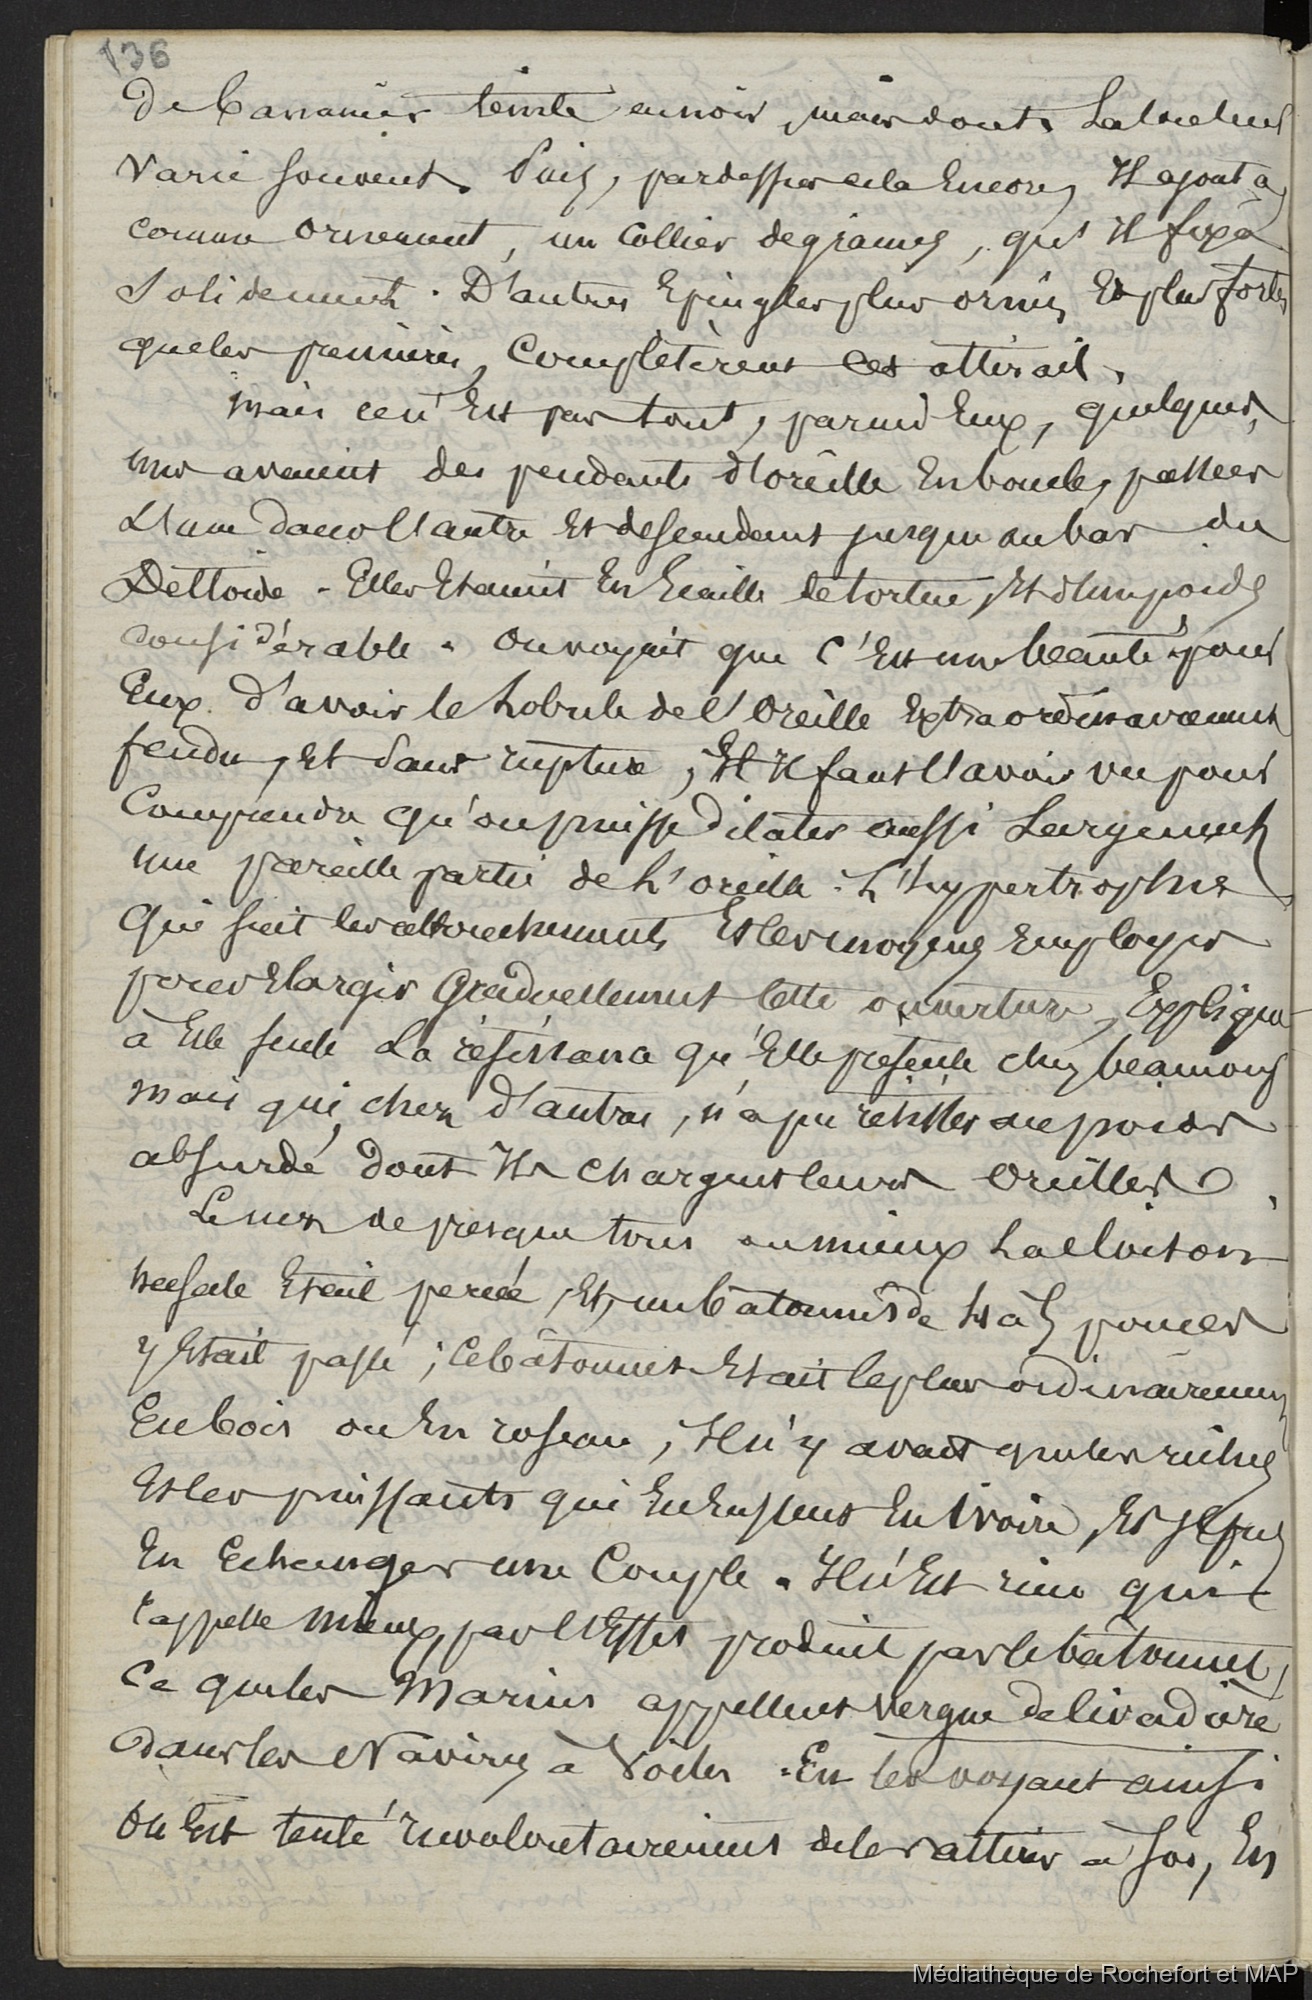 136
De bananier teinte en noir, mais dont la couleur
varie souvent. Puis, pardessus cela Encore, Il ajouta
comme ornement, un Collier de graines, qu'Il fixa
solidement. D'autres Epingles plus ornées Et plus fortes
que les premières, Complétèrent cet attirail.
Mais ce n'Est pas tout, parmi Eux, quelques
uns avaient des pendants d'oreille En boucles passées
L'une dans l'autre Et descendant jusqu'au bas du
Deltoïde. Elles Etaient En Ecaille de tortue, Et d'un poids
considérable. On voyait que C'Est une beauté pour
Eux d'avoir le Lobule de l'Oreille Extraordinairement
fendu, Et sans rupture, Et Il faut l'avoir vu pour
Comprendre qu'on puisse dilater aussi Largement
une pareille partie de L'oreille. L'hypertrophie
qui suit les attouchements Et les moyens Employés
pour Elargir Graduellement Cette ouverture, Explique
à Elle seule La résistance qu'Elle présente chez beaucoup
mais qui, chez d'autres, n'a pu résister au poids
absurde dont Ils chargent leurs Oreilles.
Le nez de presque tous ou mieux La cloison
nasale Etait percée, Et, un bâtonnet de 4 à 5 pouces
y Etait passé ; Ce bâtonnet Etait le plus ordinairement
En bois ou En roseau, Il n'y avait que les riches
Et les puissants qui En Eussent En Ivoire, Et Je pus
En Echanger une Couple. Il n'Est rien qui
rappelle Mieux, par l'Effet produit par le bâtonnet,
Ce que les Marins appellent vergue de livadière
Dans les Navires à Voiles. En les voyant ainsi
On Est tenté Involontairement de les attirer à soi, En
Médiathèque de Rochefort et MAP